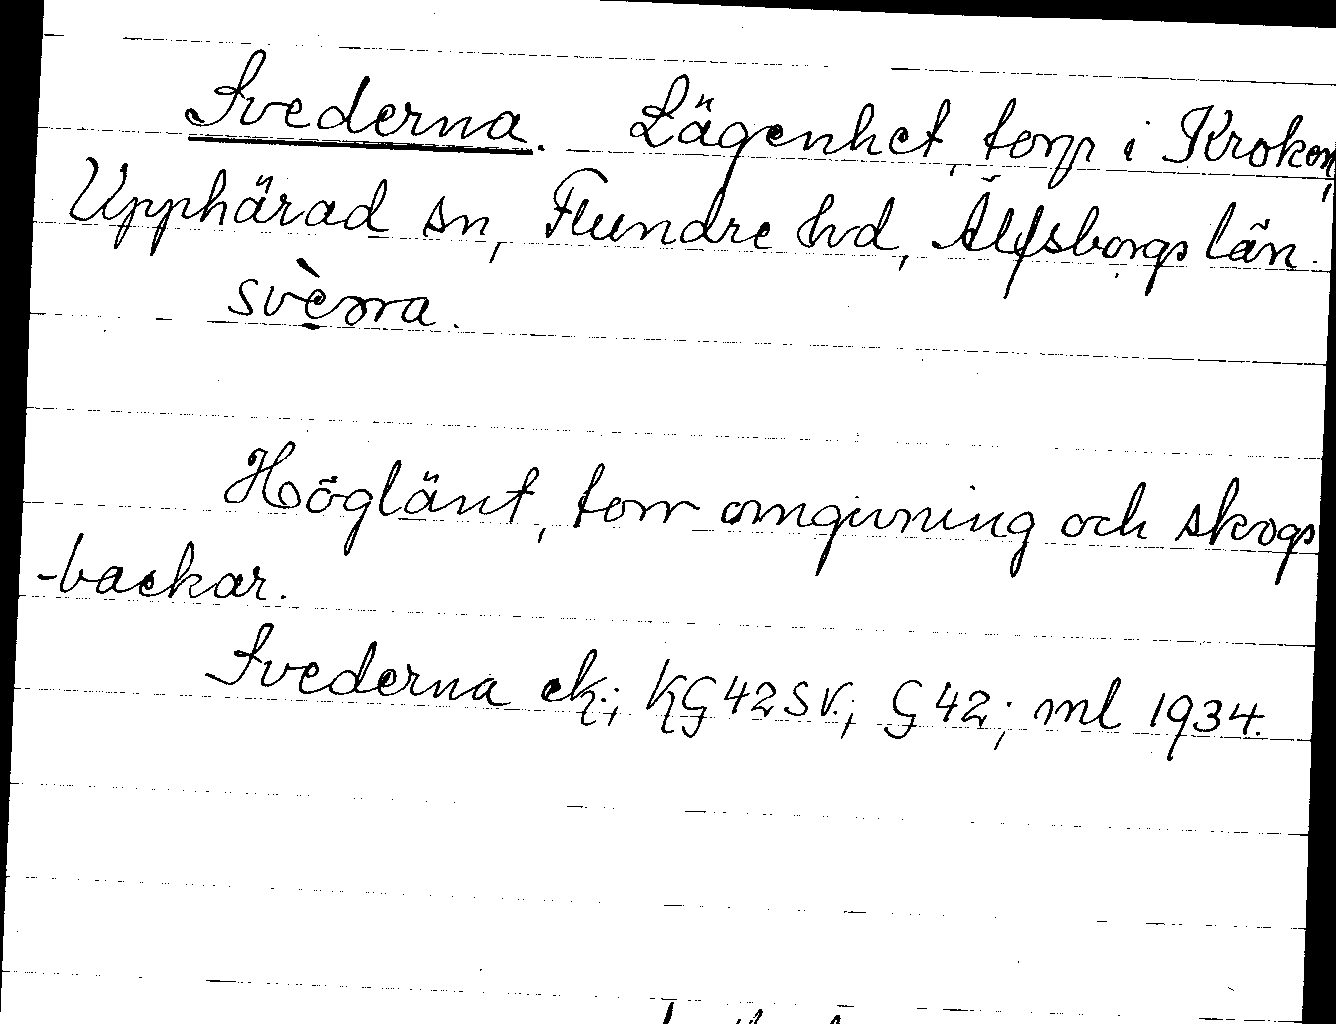 Svederna. Lägenhet, torp i Kroken,
Upphärad sn, Flundre hd, Älfsborgs län.
svèrra.
Höglänt, torr omgivning och skogs
-backar.
Svederna ek.; KG42SV.; G42; ml 1934.